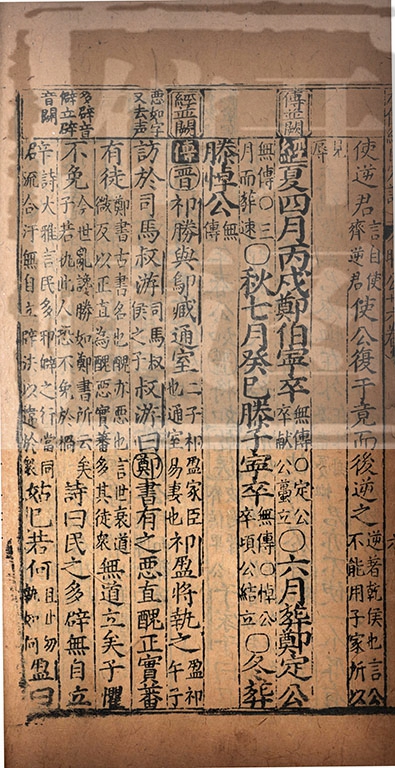 使逆君言自使齊逆君使公復于竟而後逆之逆著乾侯也言公不能用子家所以
見辱
傳並闕
經夏四月丙戌鄭伯寍卒無傳○定公卒獻公蠆立○六月葬鄭定公
無傳○三月而葬速○秋七月癸巳滕子寍卒無傳○悼公卒頃公結立○冬葬
滕悼公無傳
經並闕
傳晋祁勝與鄔臧通室二子祁盈家臣也通室易妻也祁盈將執之盈祁午子
惡如字又去声
訪於司馬叔游司馬叔侯之子叔游曰鄭書有之惡直醜正實蕃
有徒鄭書古書名也醜亦惡也言世衰道微反以正直為醜惡實蕃多其徒衆無道立矣子懼
多辟音僻立辟音闢
不免今世亂讒勝如鄭書所云矣子若仇此人恐不免於禍詩曰民之多辟無自立
辟詩大雅言民多邪辟之行當同君流合汙無自立辟法以違於衆姑已若何且止勿執如何盈曰